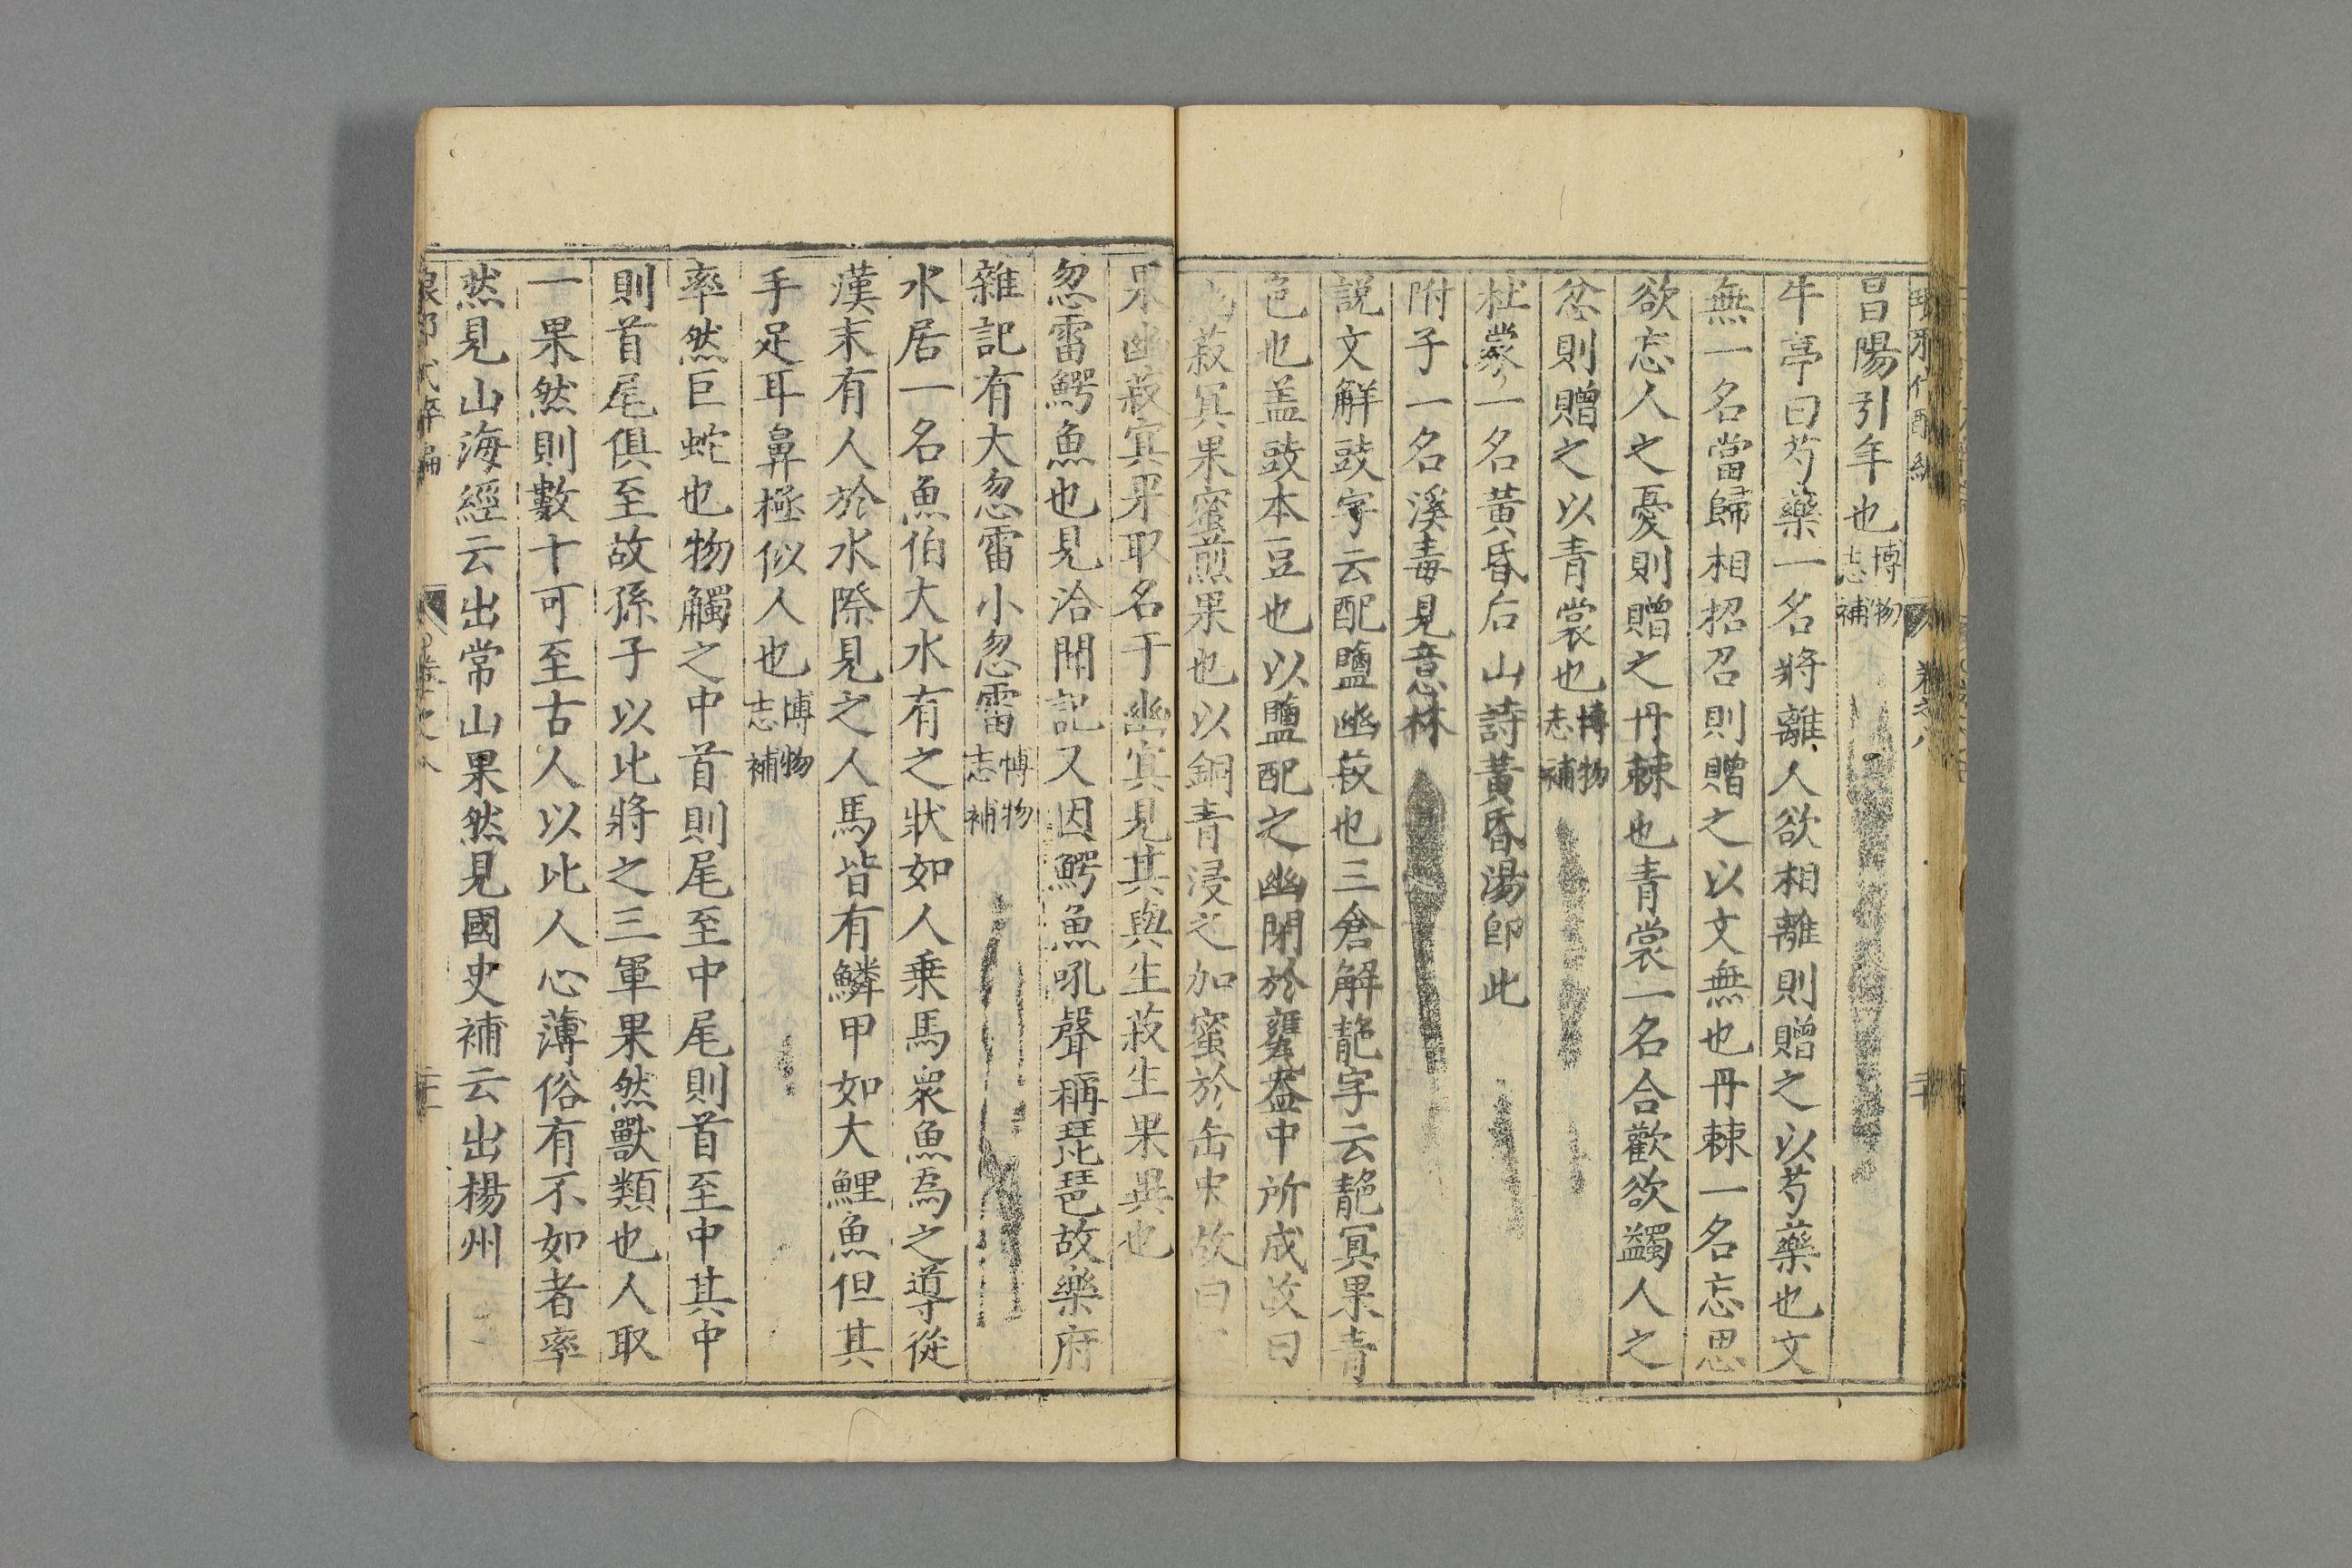 琅邪代醉編 卷之八 二十
昌陽引年也博物志補
牛亭曰芍藥一名將離人欲相離則贈之以芍藥也文
無一名當歸相招召則贈之以文無也丹棘一名忘思
欲忘人之憂則贈之丹棘也青裳一名合歡欲蠲人之
忿則贈之以青裳也博物志補
一名黃昏后山詩黃昏湯卽此
附子一名溪毒見意林
說文解豉字云配鹽幽菽也三倉解䒌字云䒌冥果青
色也盖豉本豆也以鹽配之幽閉於甕盎中所成故曰
幽菽冥果蜜煎果也以銅青浸之加蜜於缶中故曰
果幽菽冥果取名于幽冥見其與生菽生果異也
忽雷鰐魚也見洽聞記又因鰐魚吼聲稱琵琶故樂府
雜記有大忽雷小忽雷博物志補
水居一名魚伯大水有之狀如人乗馬衆魚爲之導從
漢末有人於水際見之人馬皆有鱗甲如大鯉魚但其
手足耳鼻極似人也博物志補
率然巨蛇也物觸之中首則尾至中尾則首至中其中
則首尾俱至故孫子以比將之三軍果然獸類也人取
一果然則數十可至古人以比人心薄俗有不如者率
然見山海經云出常山果然見國史補云出楊州
琅邪代醉編 卷之八 二十一